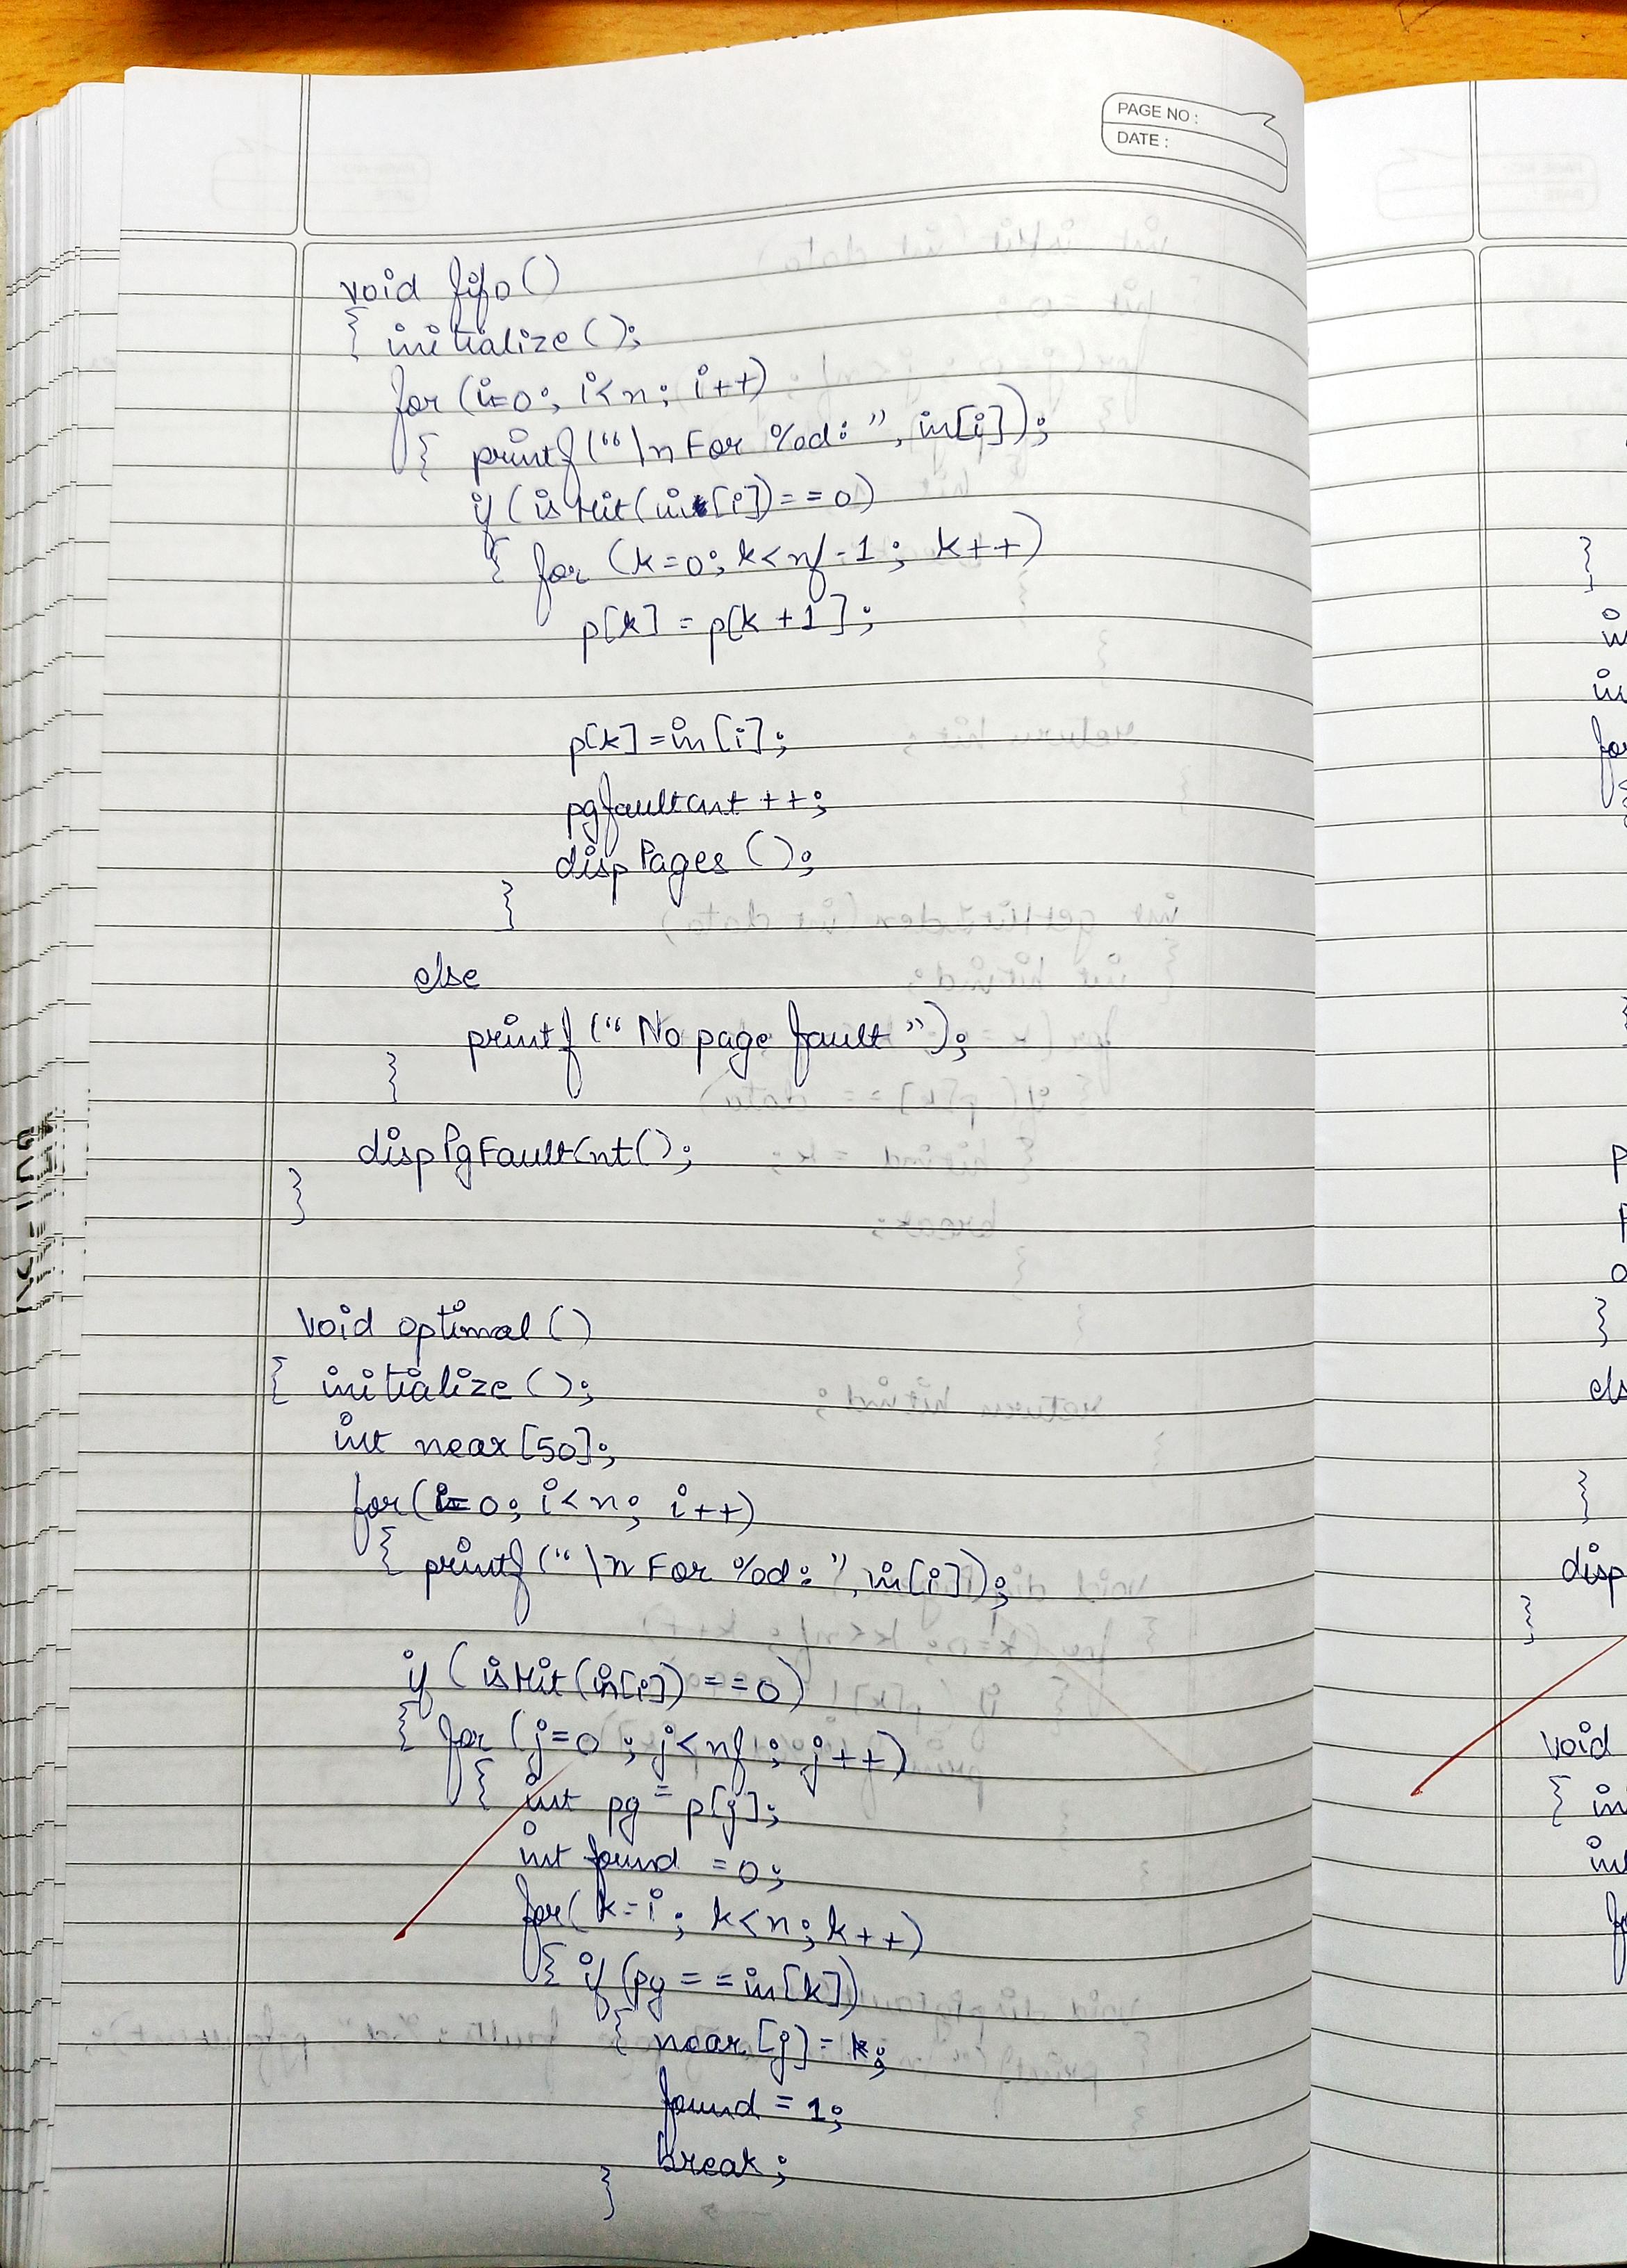 PAGE NO :
DATE :
void fifo()
{ initialize();
for (i=0; i<n; i++)
{ printf("\n For %d: ", in[i]);
if (isHit(in[i])==0)
{ for (k=0; k<nf-1; k++)
p[k] = p[k+1];
p[k]=in[i];
pgfaultcnt ++;
dispPages();
}
else
printf("No page fault");
}
dispPgFaultCnt();
}
void optimal()
{ initialize();
int near[50];
for(i=0; i<n; i++)
{ printf("\n For %d: ", in[i]);
if (isHit(in[i])==0)
{ for (j=0; j<nf; j++)
{ int pg = p[j];
int found =0;
for(k=i; k<n; k++)
{ if (pg ==in[k])
{ near[j]=k;
found = 1;
break;
}
}
in
for
}
els
}
disp
}
void
{ in
int